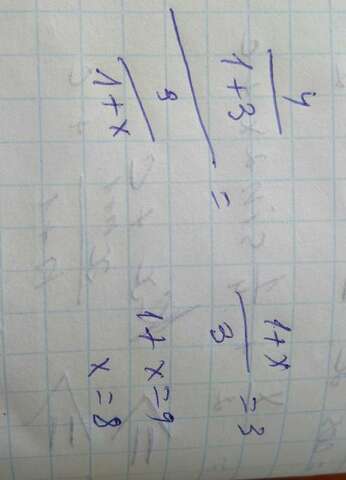 4
1+3
8
1+x
=
1+x
3
=3
1+x=9
x=8